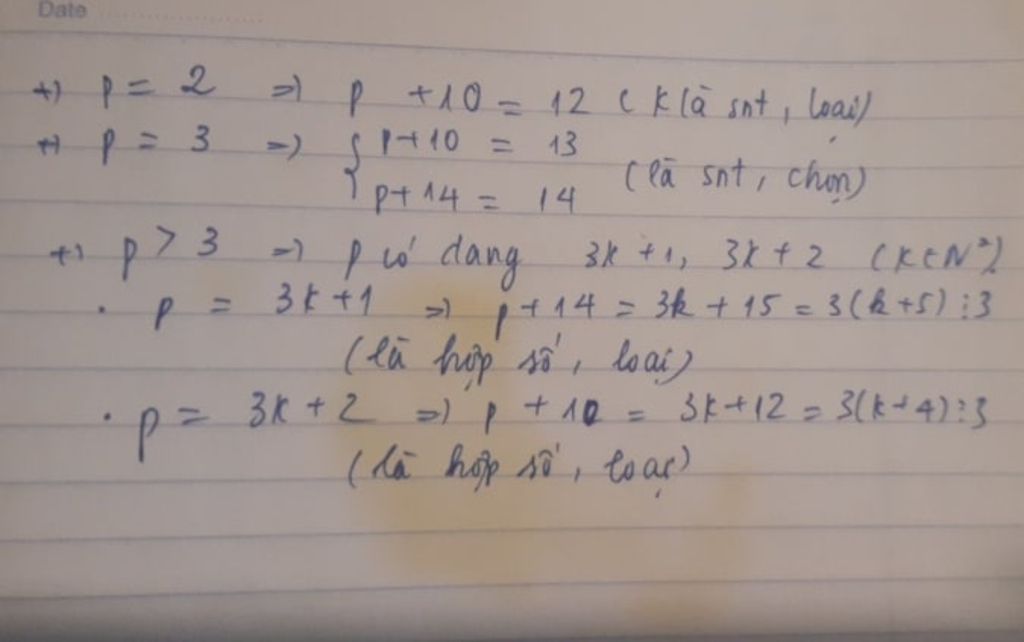 Date
+) p = 2 => p + 10 = 12 ( K là snt, loại)
+) p = 3 => { p + 10 = 13
p + 14 = 14 (là snt, chọn)
+) p > 3 => p có dạng 3k + 1, 3k + 2 (k ∈ N*)
. p = 3k + 1 => p + 14 = 3k + 15 = 3(k+5) ⋮ 3
(là hợp số, loại)
. p = 3k + 2 => p + 10 = 3k + 12 = 3(k+4) ⋮ 3
(là hợp số, loại)